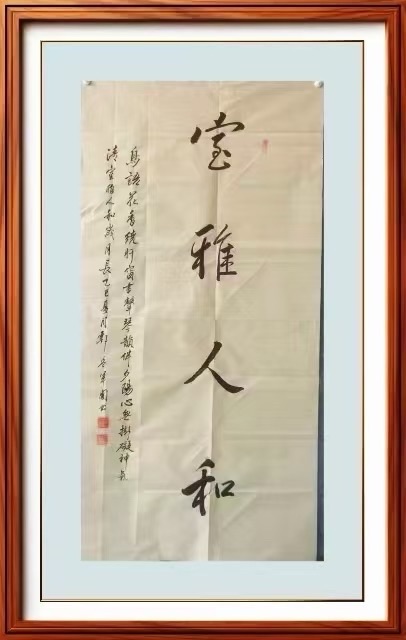 室雅人和
鳥語花香繞軒窗書聲琴韻伴夕陽心無掛礙神氣
清室雅人和歲月長乙巳夏月